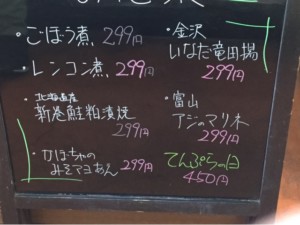 ・ごぼう煮 299円
・レンコン煮 299円
・北海道産
新巻鮭粕漬焼
299円
・かぼちゃの
みそマヨあん 299円
・金沢
いなだ竜田揚
299円
・富山
アジのマリネ
299円
てんぷらの日
450円